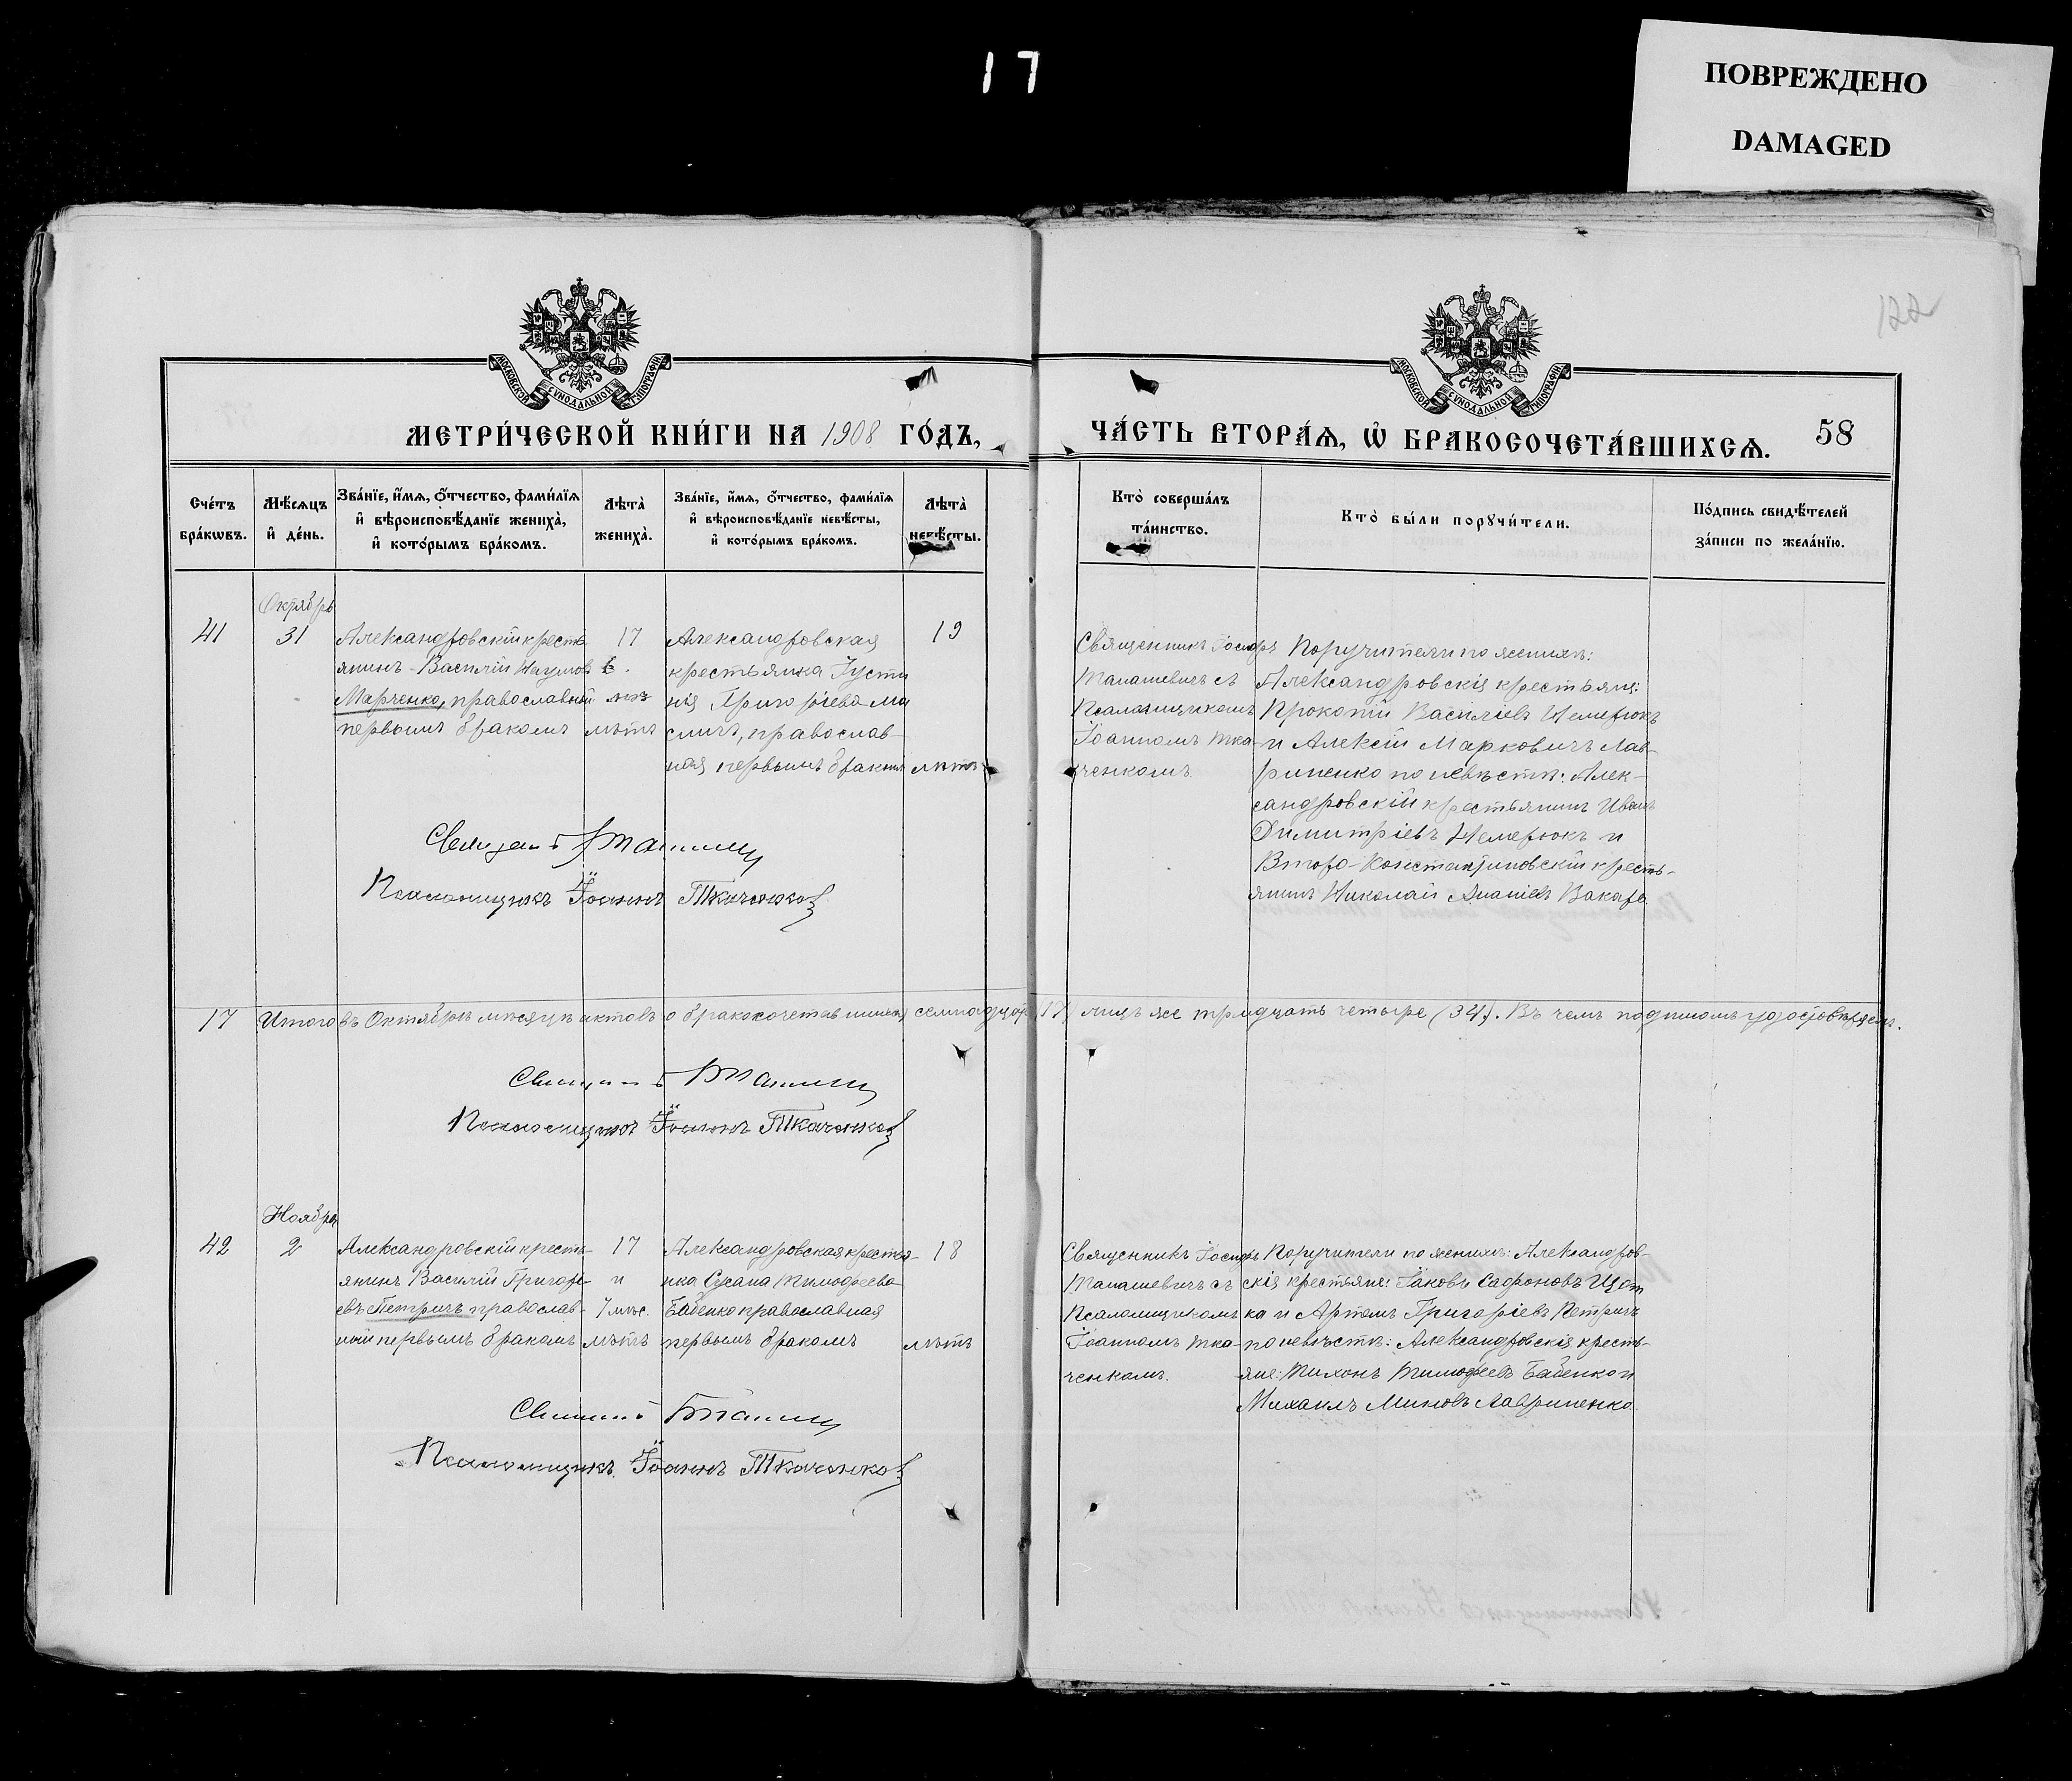 17
ПОВРЕЖДЕНО
DAMAGED
122
МОСКОВСКОЙ СУНОДАЛЬНОЙ ТИПОГРАФІИ
МОСКОВСКОЙ СУНОДАЛЬНОЙ ТИПОГРАФІИ
МЕТРИ́ЧЕСКОЙ КНИ́ГИ НА 1908 ГО́ДЪ,
ЧА́СТЬ ВТОРА́Ѧ, Ѽ БРАКОСОЧЕТА́ВШИХСѦ.
58
Сче́тъ
бра́кѡвъ.
Мѣ́сѧцъ
и҆ де́нь.
Зва́нїе, и҆́мѧ, ѻ҆́тчество, фами́лїѧ
и҆ вѣроисповѣ́данїе жениха̀,
и҆ кото́рымъ бра́комъ.
Лѣта̀
жениха̀.
Зва́нїе, и҆́мѧ, ѻ҆́тчество, фами́лїѧ
и҆ вѣроисповѣ́данїе невѣ́сты,
и҆ кото́рымъ бра́комъ.
Лѣта̀
невѣ́сты.
Кто̀ соверша́лъ
та́инство.
Кто̀ бы́ли порꙋчи́тели.
По́дпись свидѣ́телей
за́писи по жела́нїю.
Октябрь
41
31
Александровскій кресть-
янинъ Василій Наумовъ
Марченко, православный
первымъ бракомъ
17
лѣтъ
Александровская
крестьянка Іусти
нія Григоріева Ма
сличъ, православ-
ная первымъ бракомъ
19
лѣтъ
Священникъ Іосифъ
Таналиевичъ съ
Псаломщикомъ
Іоанномъ Тка-
ченкомъ.
Поручители по женихѣ:
Александровскія крестьяне:
Прокопій Васильевъ Немерюкъ
и Алексій Марковичъ Лав-
риненко по невѣстѣ: Алек-
сандровскій крестьянинъ Иванъ
Димитріевъ Немерюкъ и
Второ-Константиновскій кресть-
янинъ Николай Ананіевъ Вакаръ.
Псаломщикъ Іоаннъ Ткаченко
17
Итого въ Октябрѣ мѣсяцѣ актовъ о бракосочетавшихся семнадцать (17) лицъ же тридцать четыре (34). Въ чемъ подписомъ удостовѣряемъ.
Псаломщикъ Іоаннъ Ткаченко
Ноябрь
42
2
Александровскій кресть-
янинъ Василій Григорі-
евъ Петричъ православ-
ный первымъ бракомъ
17
и
7 мѣс.
лѣтъ
Александровская крестья-
нка Сусана Тимофеева
Бабенко православная
первымъ бракомъ
18
лѣтъ
Священникъ Іосифъ
Таналиевичъ съ
Псаломщикомъ
Іоанномъ Тка-
ченкомъ.
Поручители по женихѣ: Александров-
скія крестьяне: Іаковъ Сафроновъ Щот
ка и Артемъ Григоріевъ Петричъ
по невѣстѣ: Александровскія кресть-
яне: Тихонъ Тимофеевъ Бабенко и
Михаилъ Миновъ Лавриненко.
Псаломщикъ Іоаннъ Ткаченко